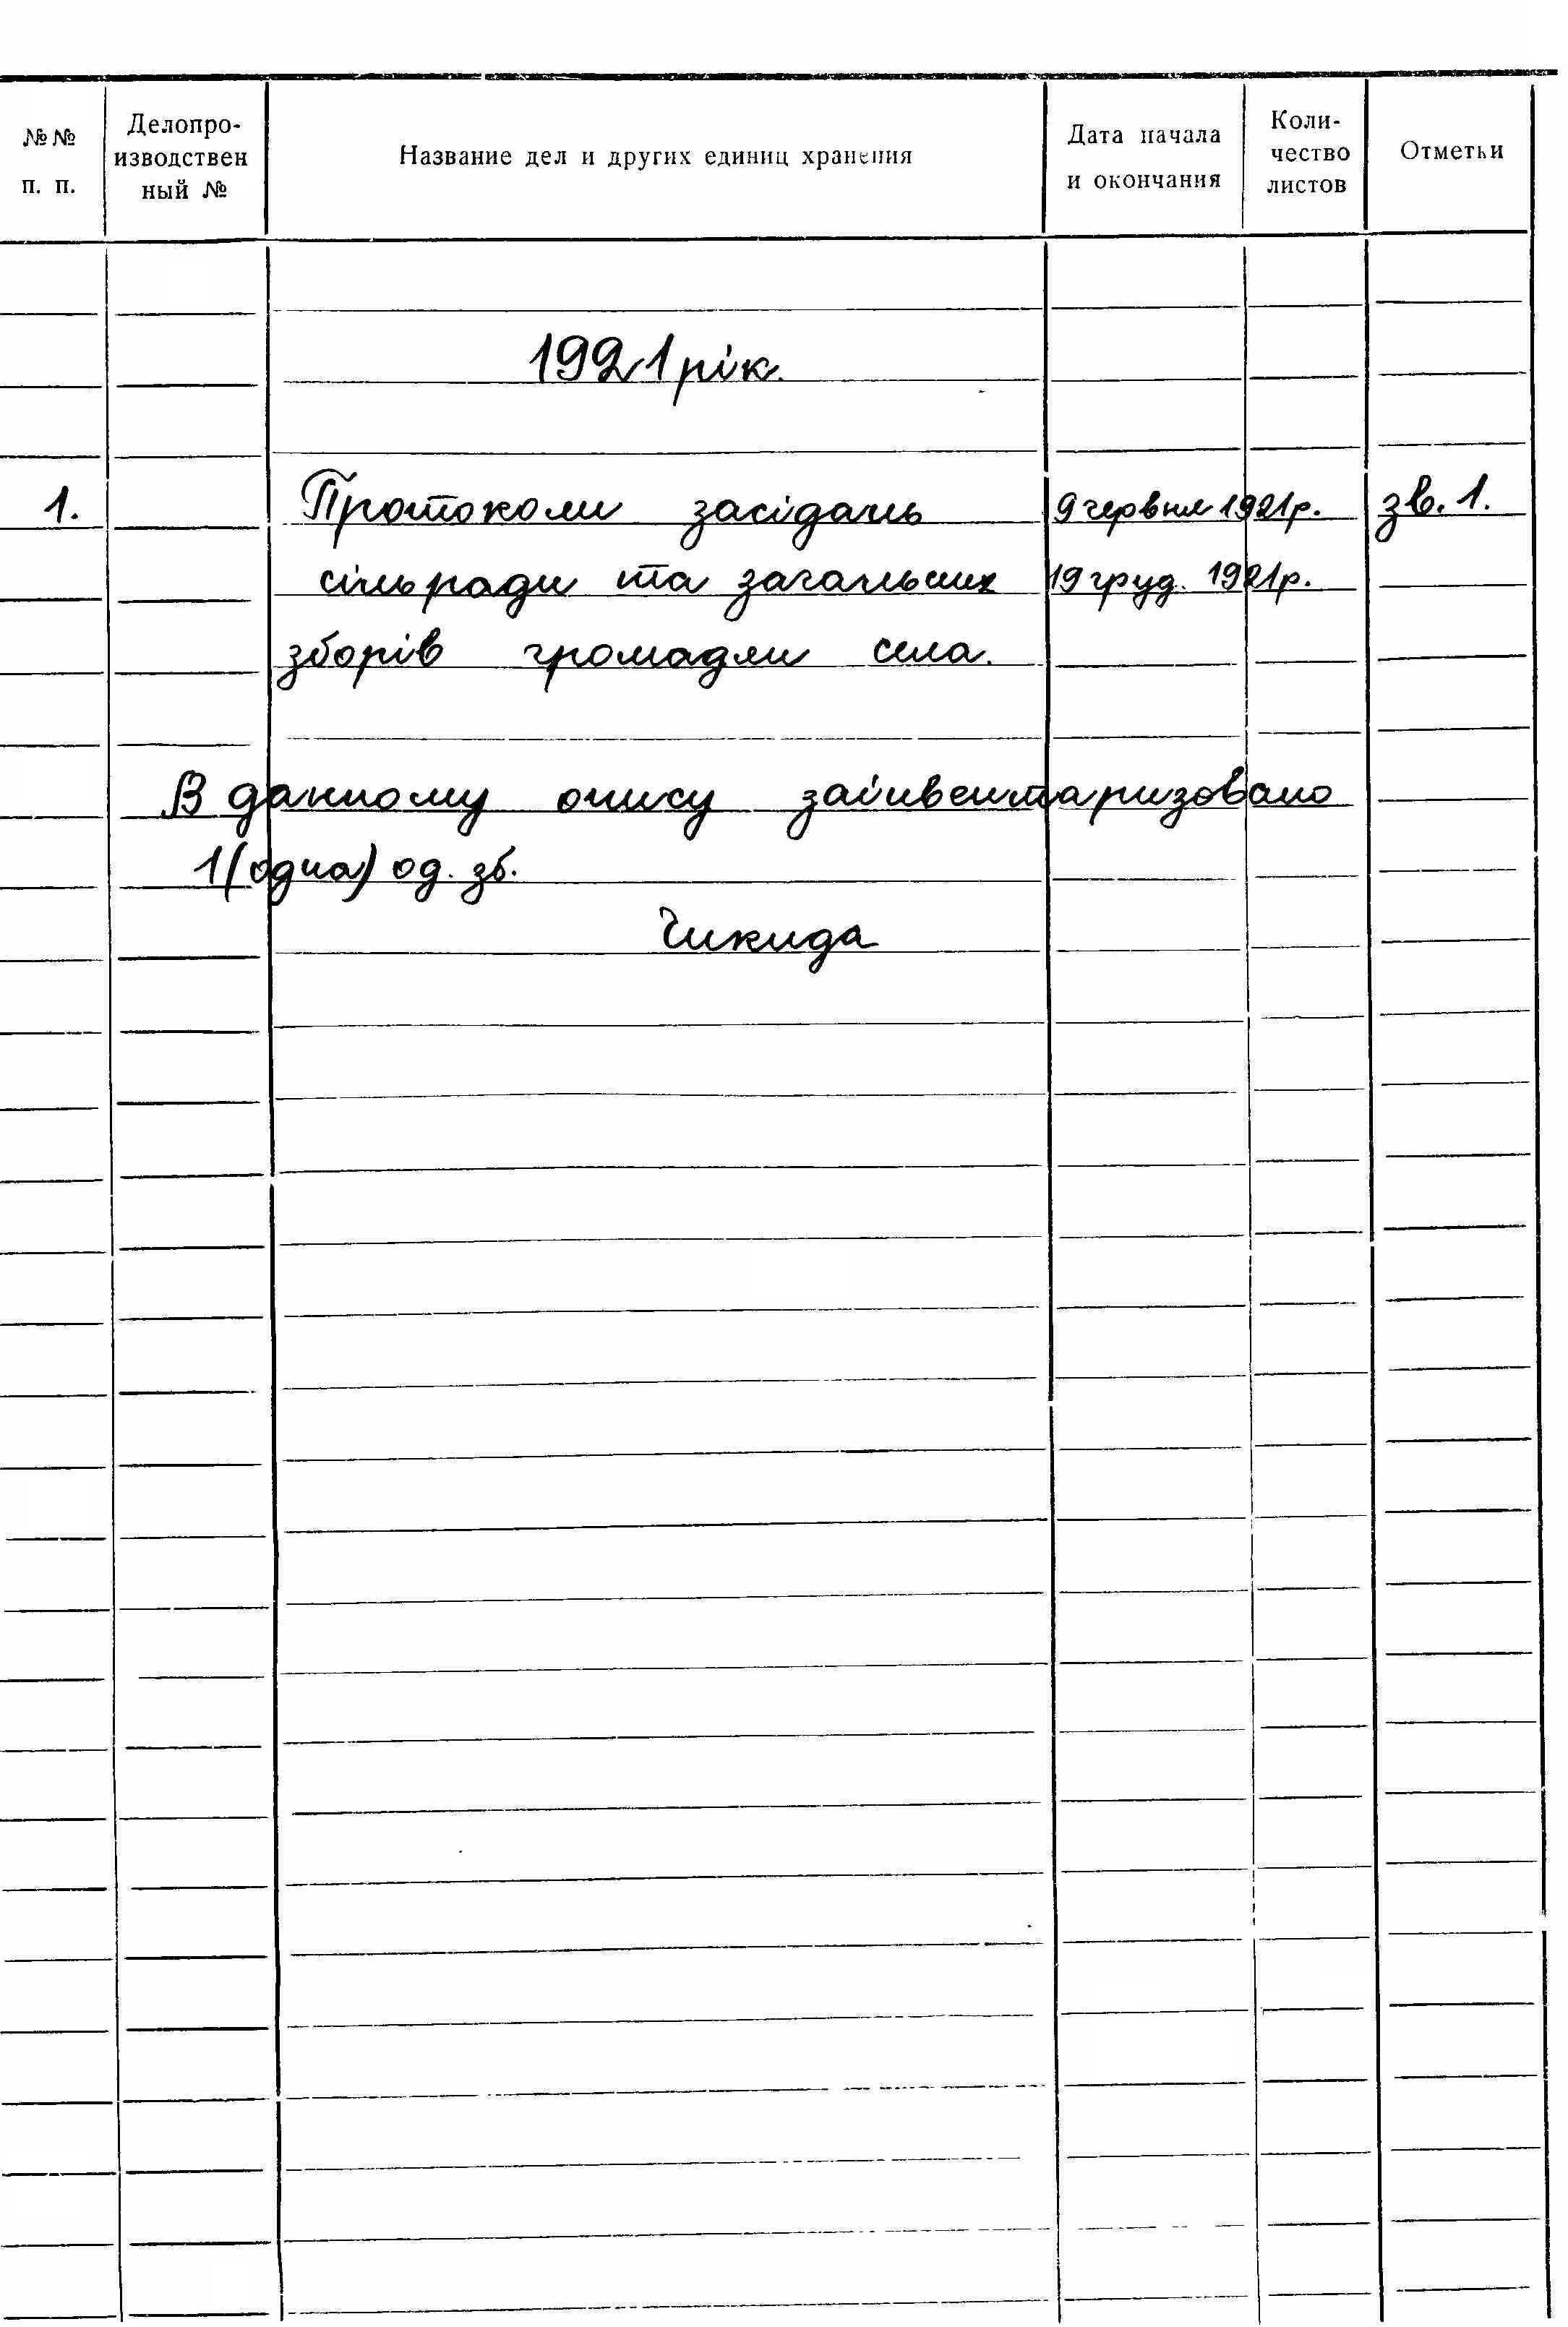 №№ п. п.
Делопро-изводствен ный №
Название дел и других единиц хранения
Дата начала и окончания
Коли-чество листов
Отметки
1921 рік.
1. Протоколи засідань 9 червня 1921р. зв. 1.
сільради та загальних 19 груд. 1921р.
зборів громадян села.
В данному опису заінвентаризовано
1 (одна) од. зб.
Чикида